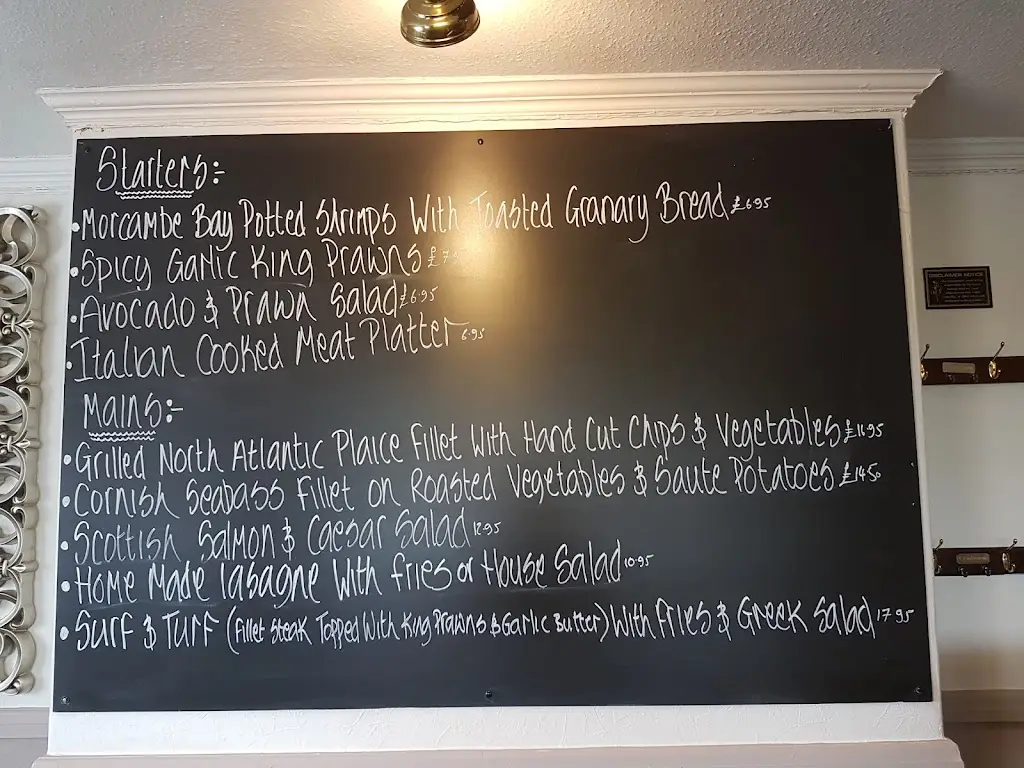 Starters:-
• Morcambe Bay Potted Shrimps With Toasted Granary Bread £6.95
• Spicy Garlic King Prawns
• Avocado & Prawn Salad £6.95
• Italian Cooked Meat Platter 6.95
Mains:-
• Grilled North Atlantic Plaice Fillet With Hand Cut Chips & Vegetables
• Cornish Seabass Fillet on Roasted Vegetables & Saute Potatoes £14.50
• Scottish Salmon & Caesar Salad 12.95
• Home Made lasagne With fries or House Salad 10.95
• Surf & Turf (Fillet Steak Topped With King Prawns & Garlic Butter) With Fries & Greek Salad 17.95
DISCLAIMER NOTICE